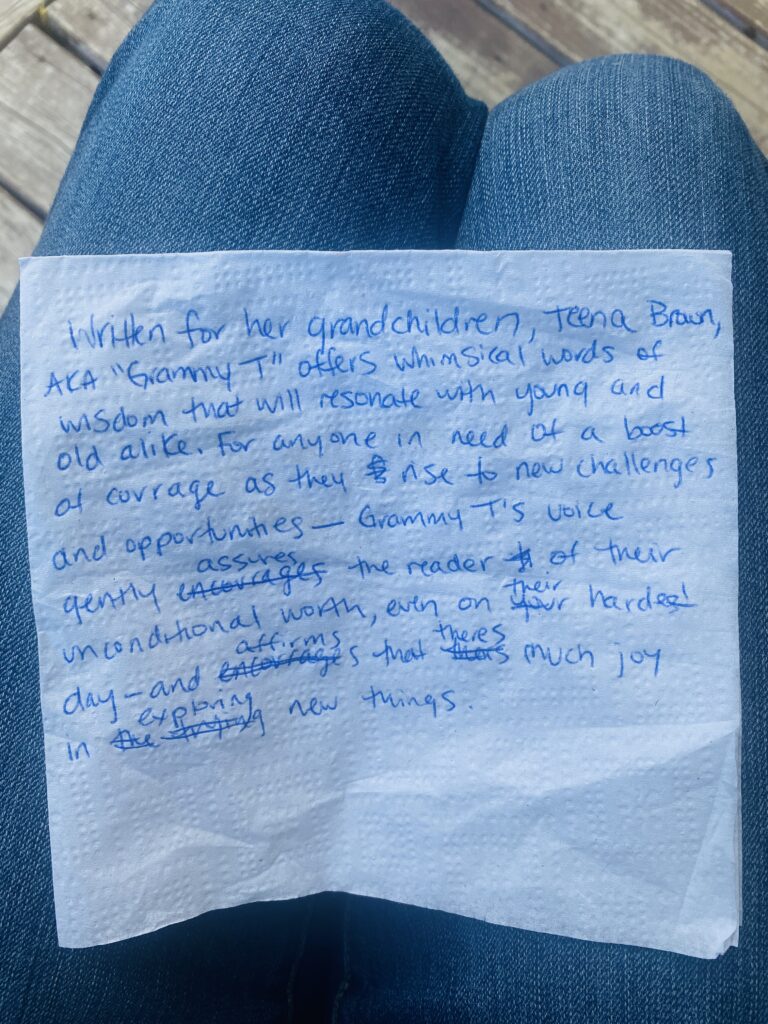 Written for her grandchildren, Teena Braun,
AKA "Grammy T" offers whimsical words of
wisdom that will resonate with young and
old alike. For anyone in need of a boost
of courage as they rise to new challenges
and opportunities — Grammy T's voice
assures
gently encourages the reader of their
their
unconditional worth, even on your hard
affirms theres
day — and encourages that much joy
exploring
in the trying new things.